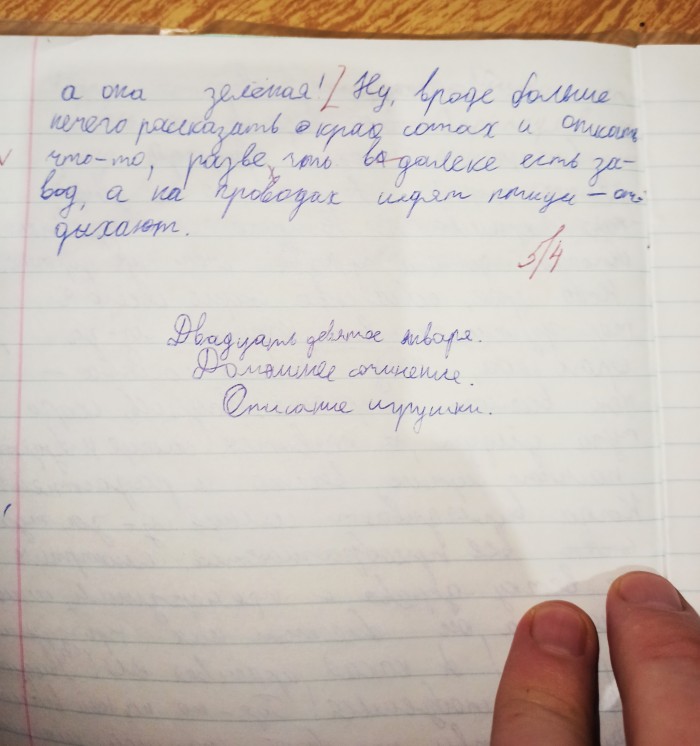 а она зелёная! Ну, вроде больше
нечего рассказать о и описать
что-то, разве, что вдалеке есть за-
вод, а на проводах сидят птицы – от-
дыхают.
5/4
Двадцать девятое января.
Домашнее сочинение.
Описание игрушки.